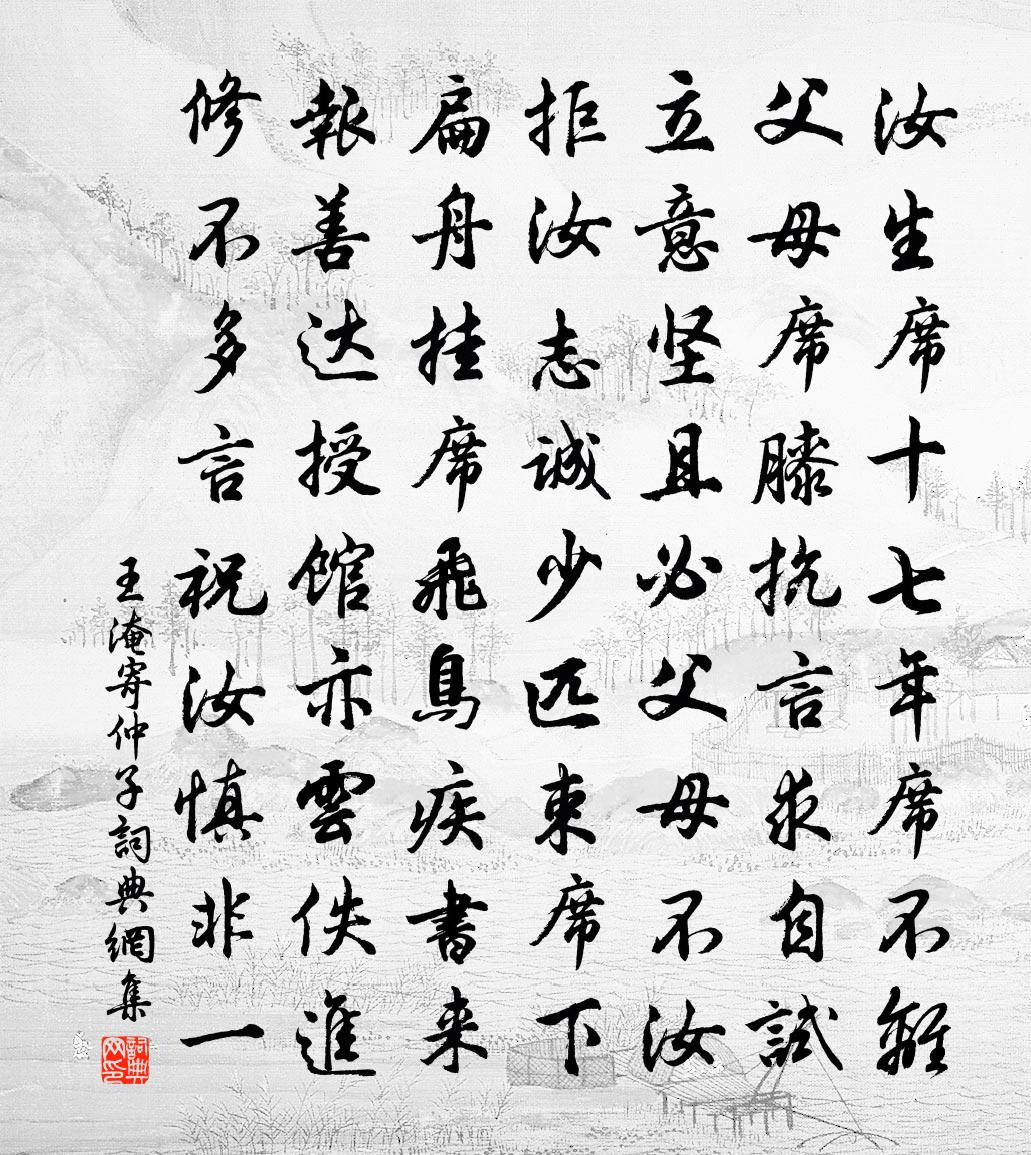 汝生席十七年席不離
父母席膝抗言求自試
立意坚且必父母不汝
拒汝志诚少匹束席下
扁舟挂席飛鳥疾書来
報善达授館亦雲佚進
修不多言祝汝慎非一
王淹寄仲子詞典網集
詞典网印